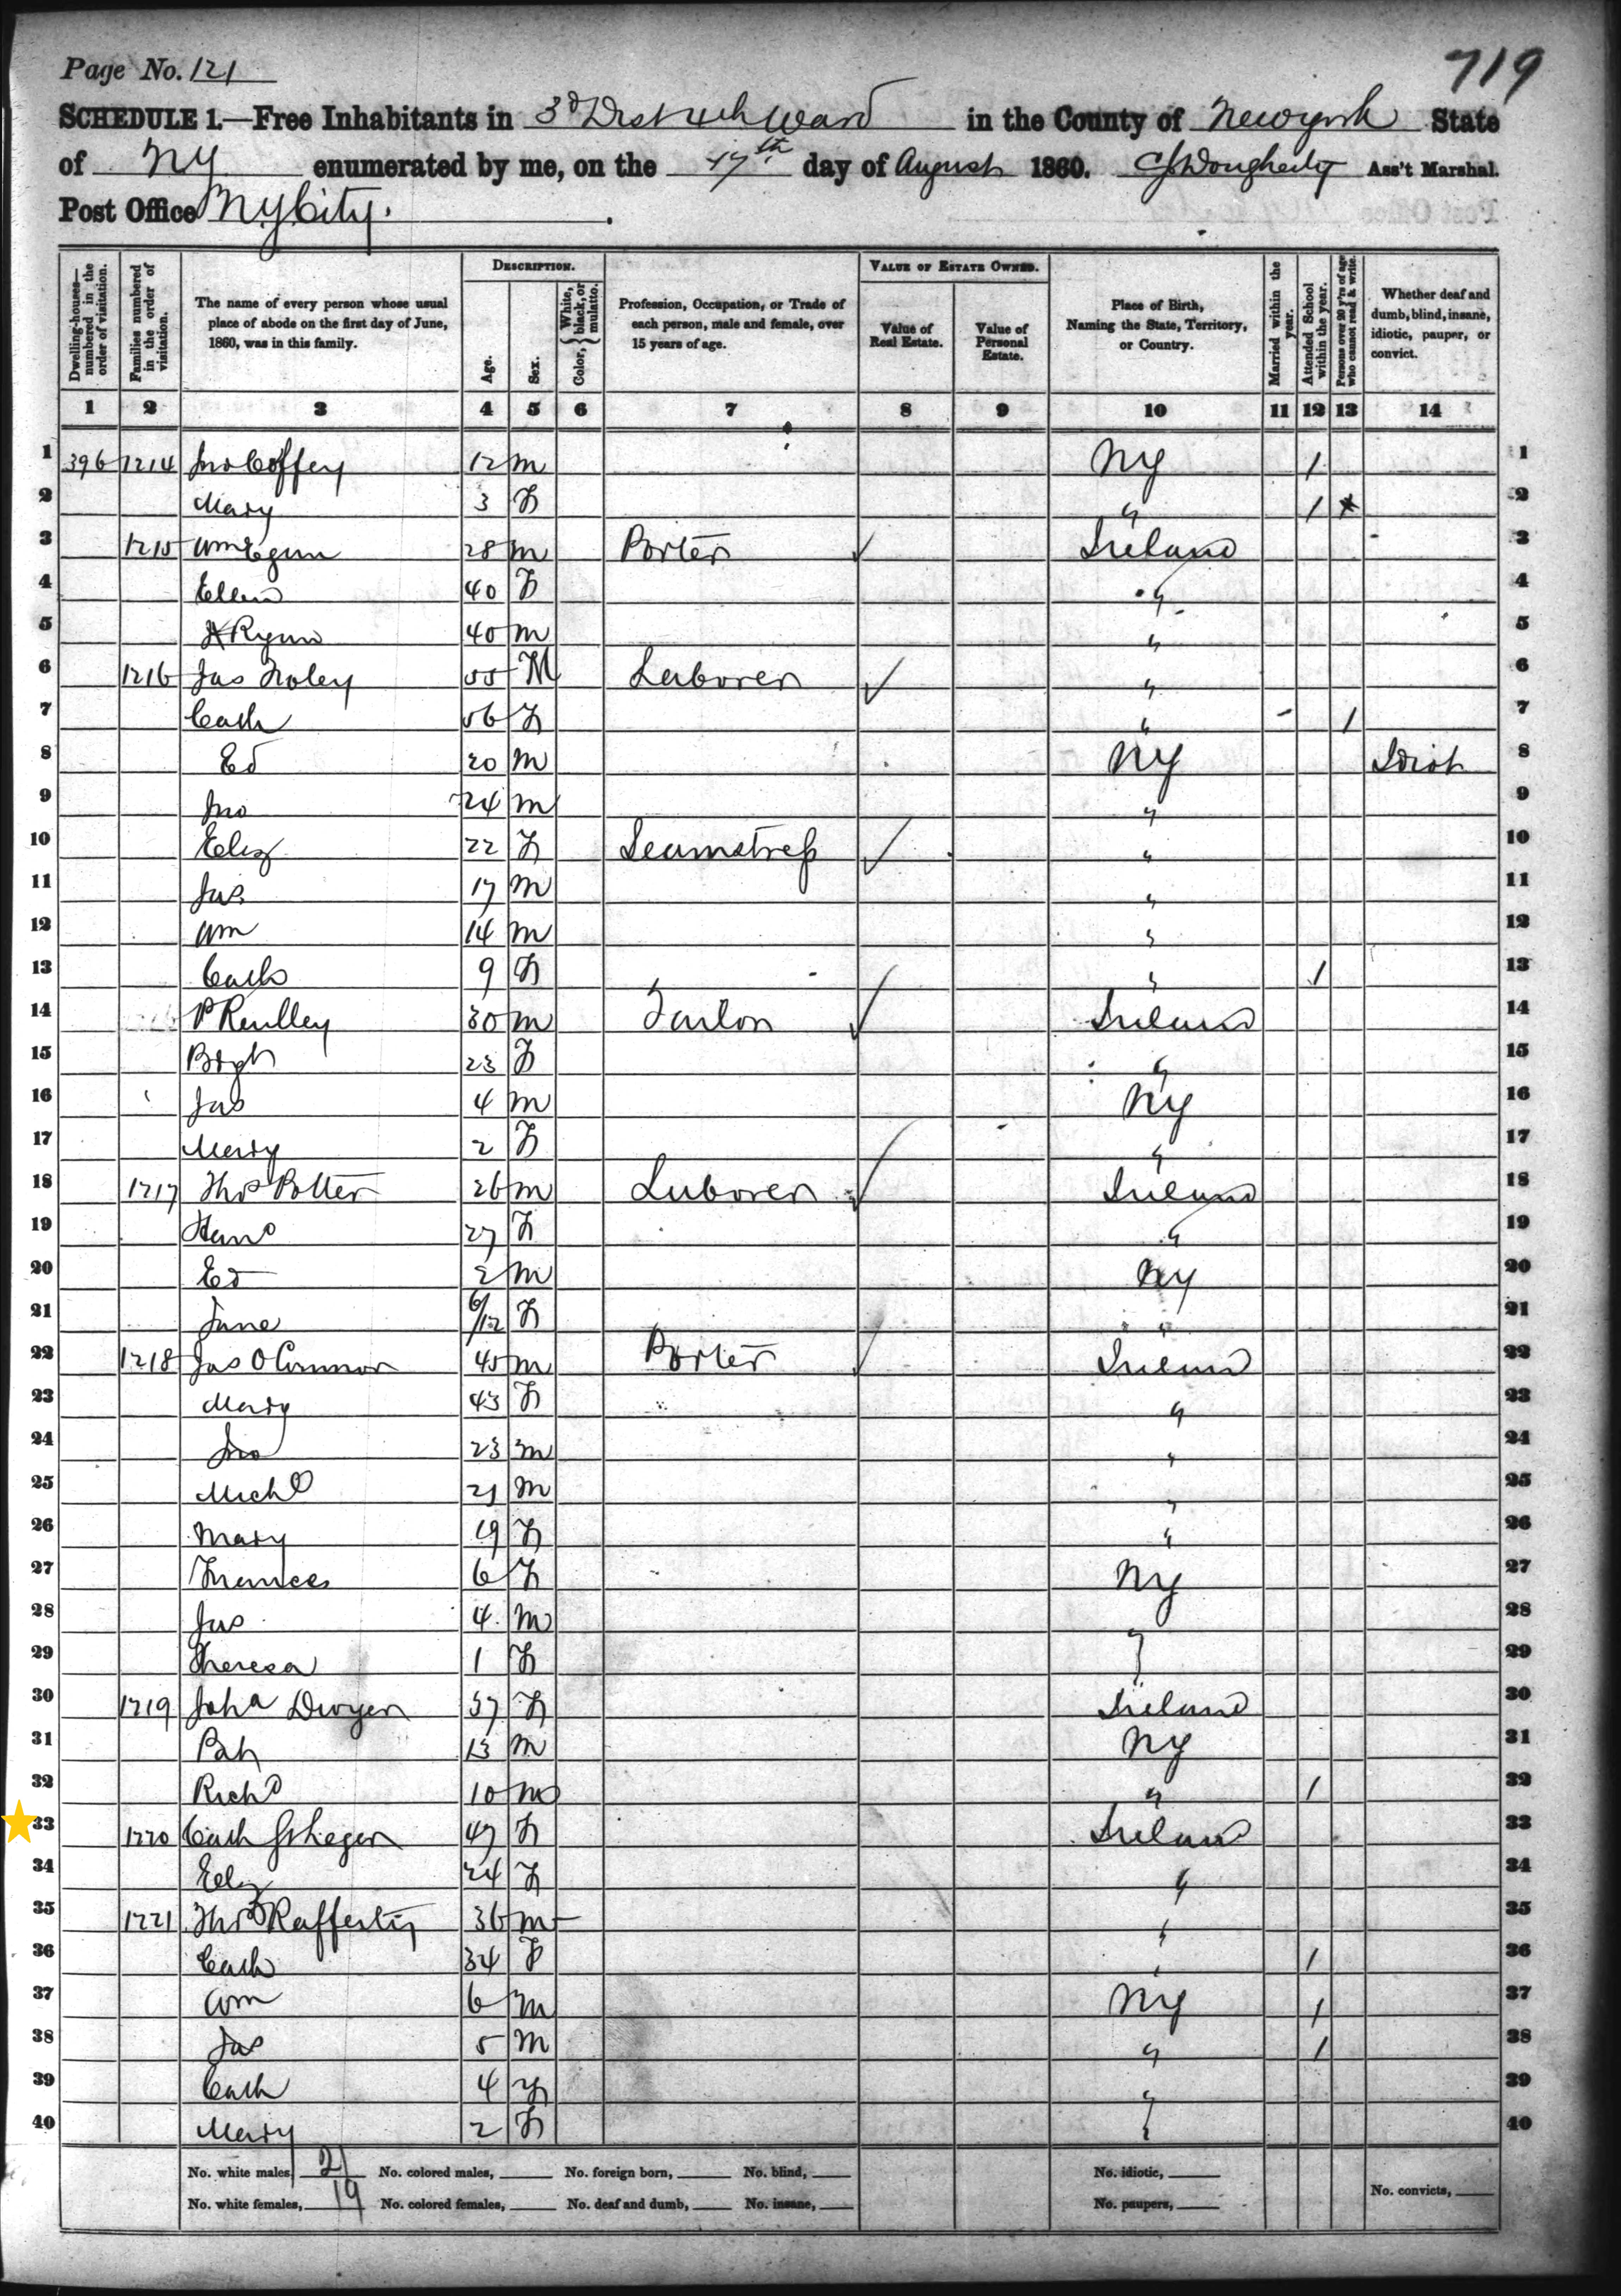 719
Page No. 121
SCHEDULE 1.—Free Inhabitants in 3d Dist 4th Ward in the County of New York State
of NY enumerated by me, on the 17th day of August 1860. CJ Dougherty Ass't Marshal.
Post Office NY City.
Dwelling-houses—numbered in the order of visitation.
Families numbered in the order of visitation.
The name of every person whose usual place of abode on the first day of June, 1860, was in this family.
DESCRIPTION.
Age.
Sex.
Color, White, black, or mulatto.
Profession, Occupation, or Trade of each person, male and female, over 15 years of age.
VALUE OF ESTATE OWNED.
Value of Real Estate.
Value of Personal Estate.
Place of Birth, Naming the State, Territory, or Country.
Married within the year.
Attended School within the year.
Persons over 20 y'rs of age who cannot read & write.
Whether deaf and dumb, blind, insane, idiotic, pauper, or convict.
1 2 3 4 5 6 7 8 9 10 11 12 13 14
1 396 1214 Jno Coffey 12 m NY / 1
2 Mary 3 F " / 2
3 1215 Wm Egan 28 m Porter ✓ Ireland 3
4 Ellen 40 F " 4
5 Ryan 40 m " 5
6 1216 Jas Foley 55 M Laborer ✓ " 6
7 Cath 56 F " / 7
8 Ed 20 m NY Idiot 8
9 Jno 24 m " 9
10 Eliz 22 F Seamstress ✓ " 10
11 Jas 17 m " 11
12 Wm 14 m " 12
13 Cath 9 F " / 13
14 P 30 m Tailor ✓ Ireland 14
15 Bdgt 23 F " 15
16 Jas 4 m NY 16
17 Mary 2 F " 17
18 1217 Thos Potter 26 m Laborer ✓ Ireland 18
19 27 F " 19
20 Ed 2 m NY 20
21 Jane 6/12 F " 21
22 1218 Jas O Connor 45 m Porter ✓ Ireland 22
23 Mary 43 F " 23
24 Jno 23 m " 24
25 Michl 21 m " 25
26 Mary 19 F " 26
27 Frances 6 F NY 27
28 Jas 4 m 28
29 Theresa 1 F 29
30 1219 Joha Dwyer 37 F Ireland 30
31 Pat 13 m NY 31
32 Richd 10 m " / 32
33 1220 Cath StLeger 47 F Ireland 33
34 Eliz 24 F " 34
35 1221 Thos Rafferty 36 m " 35
36 Cath 34 F " / 36
37 Wm 6 m NY / 37
38 Jas 5 m " / 38
39 Cath 4 F " 39
40 Mary 2 F 40
No. white males, 21 No. colored males, No. foreign born, No. blind, No. idiotic,
No. white females, 19 No. colored females, No. deaf and dumb, No. insane, No. paupers, No. convicts,